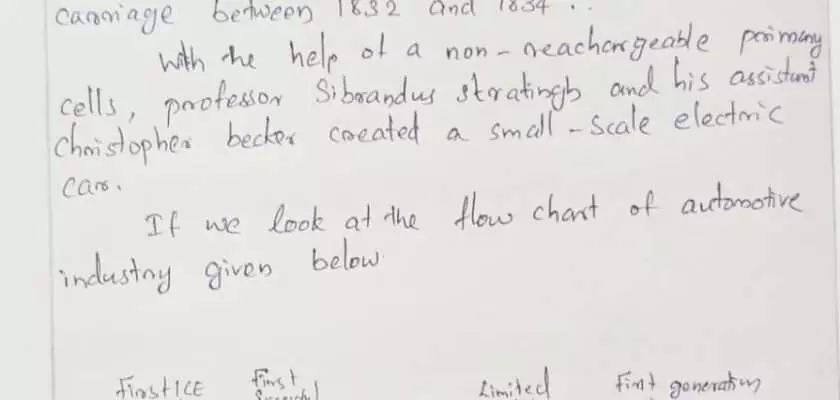 carriage between 1832 and 1834 ..
With the help of a non-reachargeable primary
cells, professor Sibrandus stratingb and his assistant
Christopher becker created a small-scale electric
car.
If we look at the flow chart of automotive
industry given below
First ICE First Limited First generation